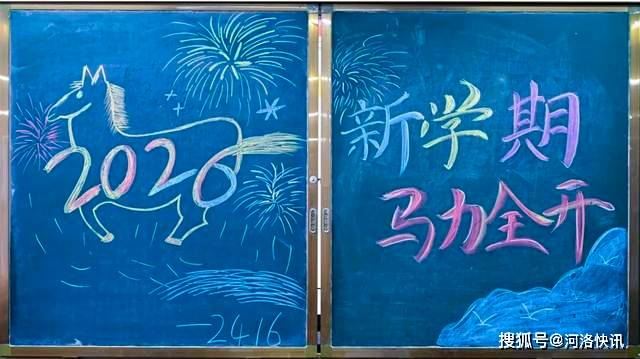 2026
—2416
新学期
马力全开
搜狐号@河洛快讯